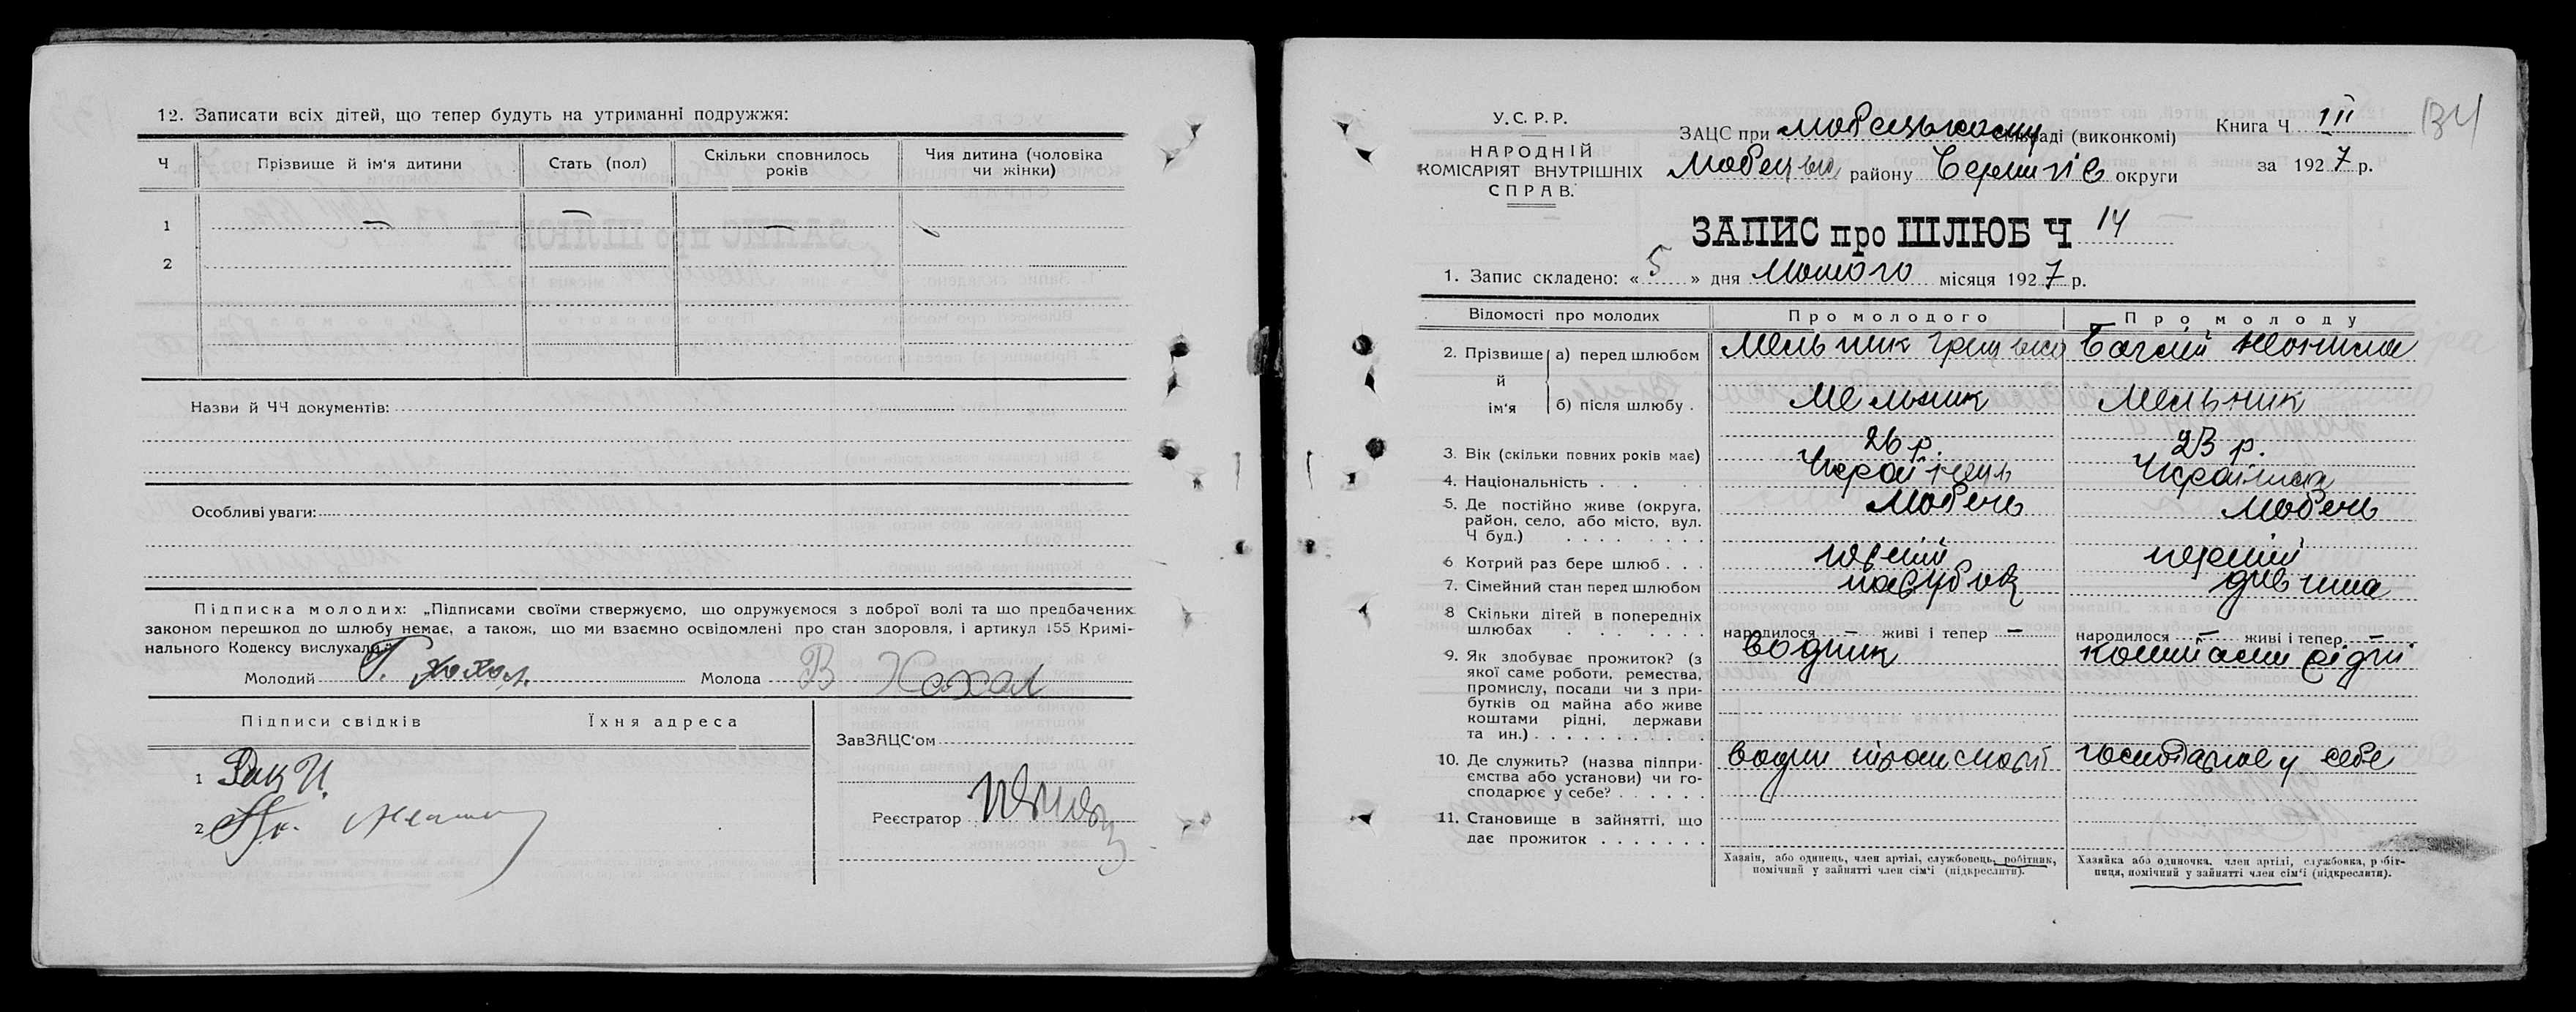 12. Записати всіх дітей, що тепер будуть на утриманні подружжя:
Ч Прізвище й ім'я дитини Стать (пол) Скільки сповнилось років Чия дитина (чоловіка чи жінки)
1 — — —
2
Назви й ЧЧ документів:
Особливі уваги:
Підписка молодих: „Підписами своїми стверджуємо, що одружуємося з доброї волі та що предбачених
законом перешкод до шлюбу немає, а також, що ми взаємно освідомлені про стан здоровля, і артикул 155 Кримі-
нального Кодексу вислухали."
Молодий Г. Хохол. Молода В Хохол
Підписи свідків Їхня адреса
ЗавЗАЦС'ом
1 Рак И.
2
Реєстратор
У.С.Р.Р.
НАРОДНІЙ
КОМІСАРІЯТ ВНУТРІШНІХ
СПРАВ.
ЗАЦС при Любецькому сільраді (виконкомі)
Любецько району Чернигів округи
Книга Ч III
134
за 1927 р.
ЗАПИС про ШЛЮБ Ч 14
1. Запис складено: «5» дня Лютого місяця 1927 р.
Відомості про молодих Про молодого Про молоду
2. Прізвище й ім'я а) перед шлюбом Мельник Грицько Багмій
б) після шлюбу . Мельник Мельник
3. Вік (скільки повних років має) 26 р. 23 р.
4. Національність . . . Українець Українка
5. Де постійно живе (округа, Любеч Любеч
район, село, або місто, вул.
Ч буд.) . . . . . . . .
6 Котрий раз бере шлюб . . . перший перший
7. Сімейний стан перед шлюбом парубок дівчина
8 Скільки дітей в попередніх
шлюбах . . . . . . . народилося — живі і тепер — народилося — живі і тепер —
9. Як здобуває прожиток? (з водник коштами рідні
якої саме роботи, ремества,
промислу, посади чи з при-
бутків од майна або живе
коштами рідні, держави
та ин.) . . . . . . . . .
10. Де служить? (назва підпри- водни транспорт господарює у себе
ємства або установи) чи го-
сподарює у себе? . . . . . .
11. Становище в зайнятті, що
дає прожиток . . . . . . .
Хазяін, або одинець, член артілі, службовець, робітник,
помічний у зайнятті член сім'ї (підкреслити).
Хазяйка або одиночка, член артілі, службовка, робіт-
ниця, помічний у зайнятті член сім'ї (підкреслити).